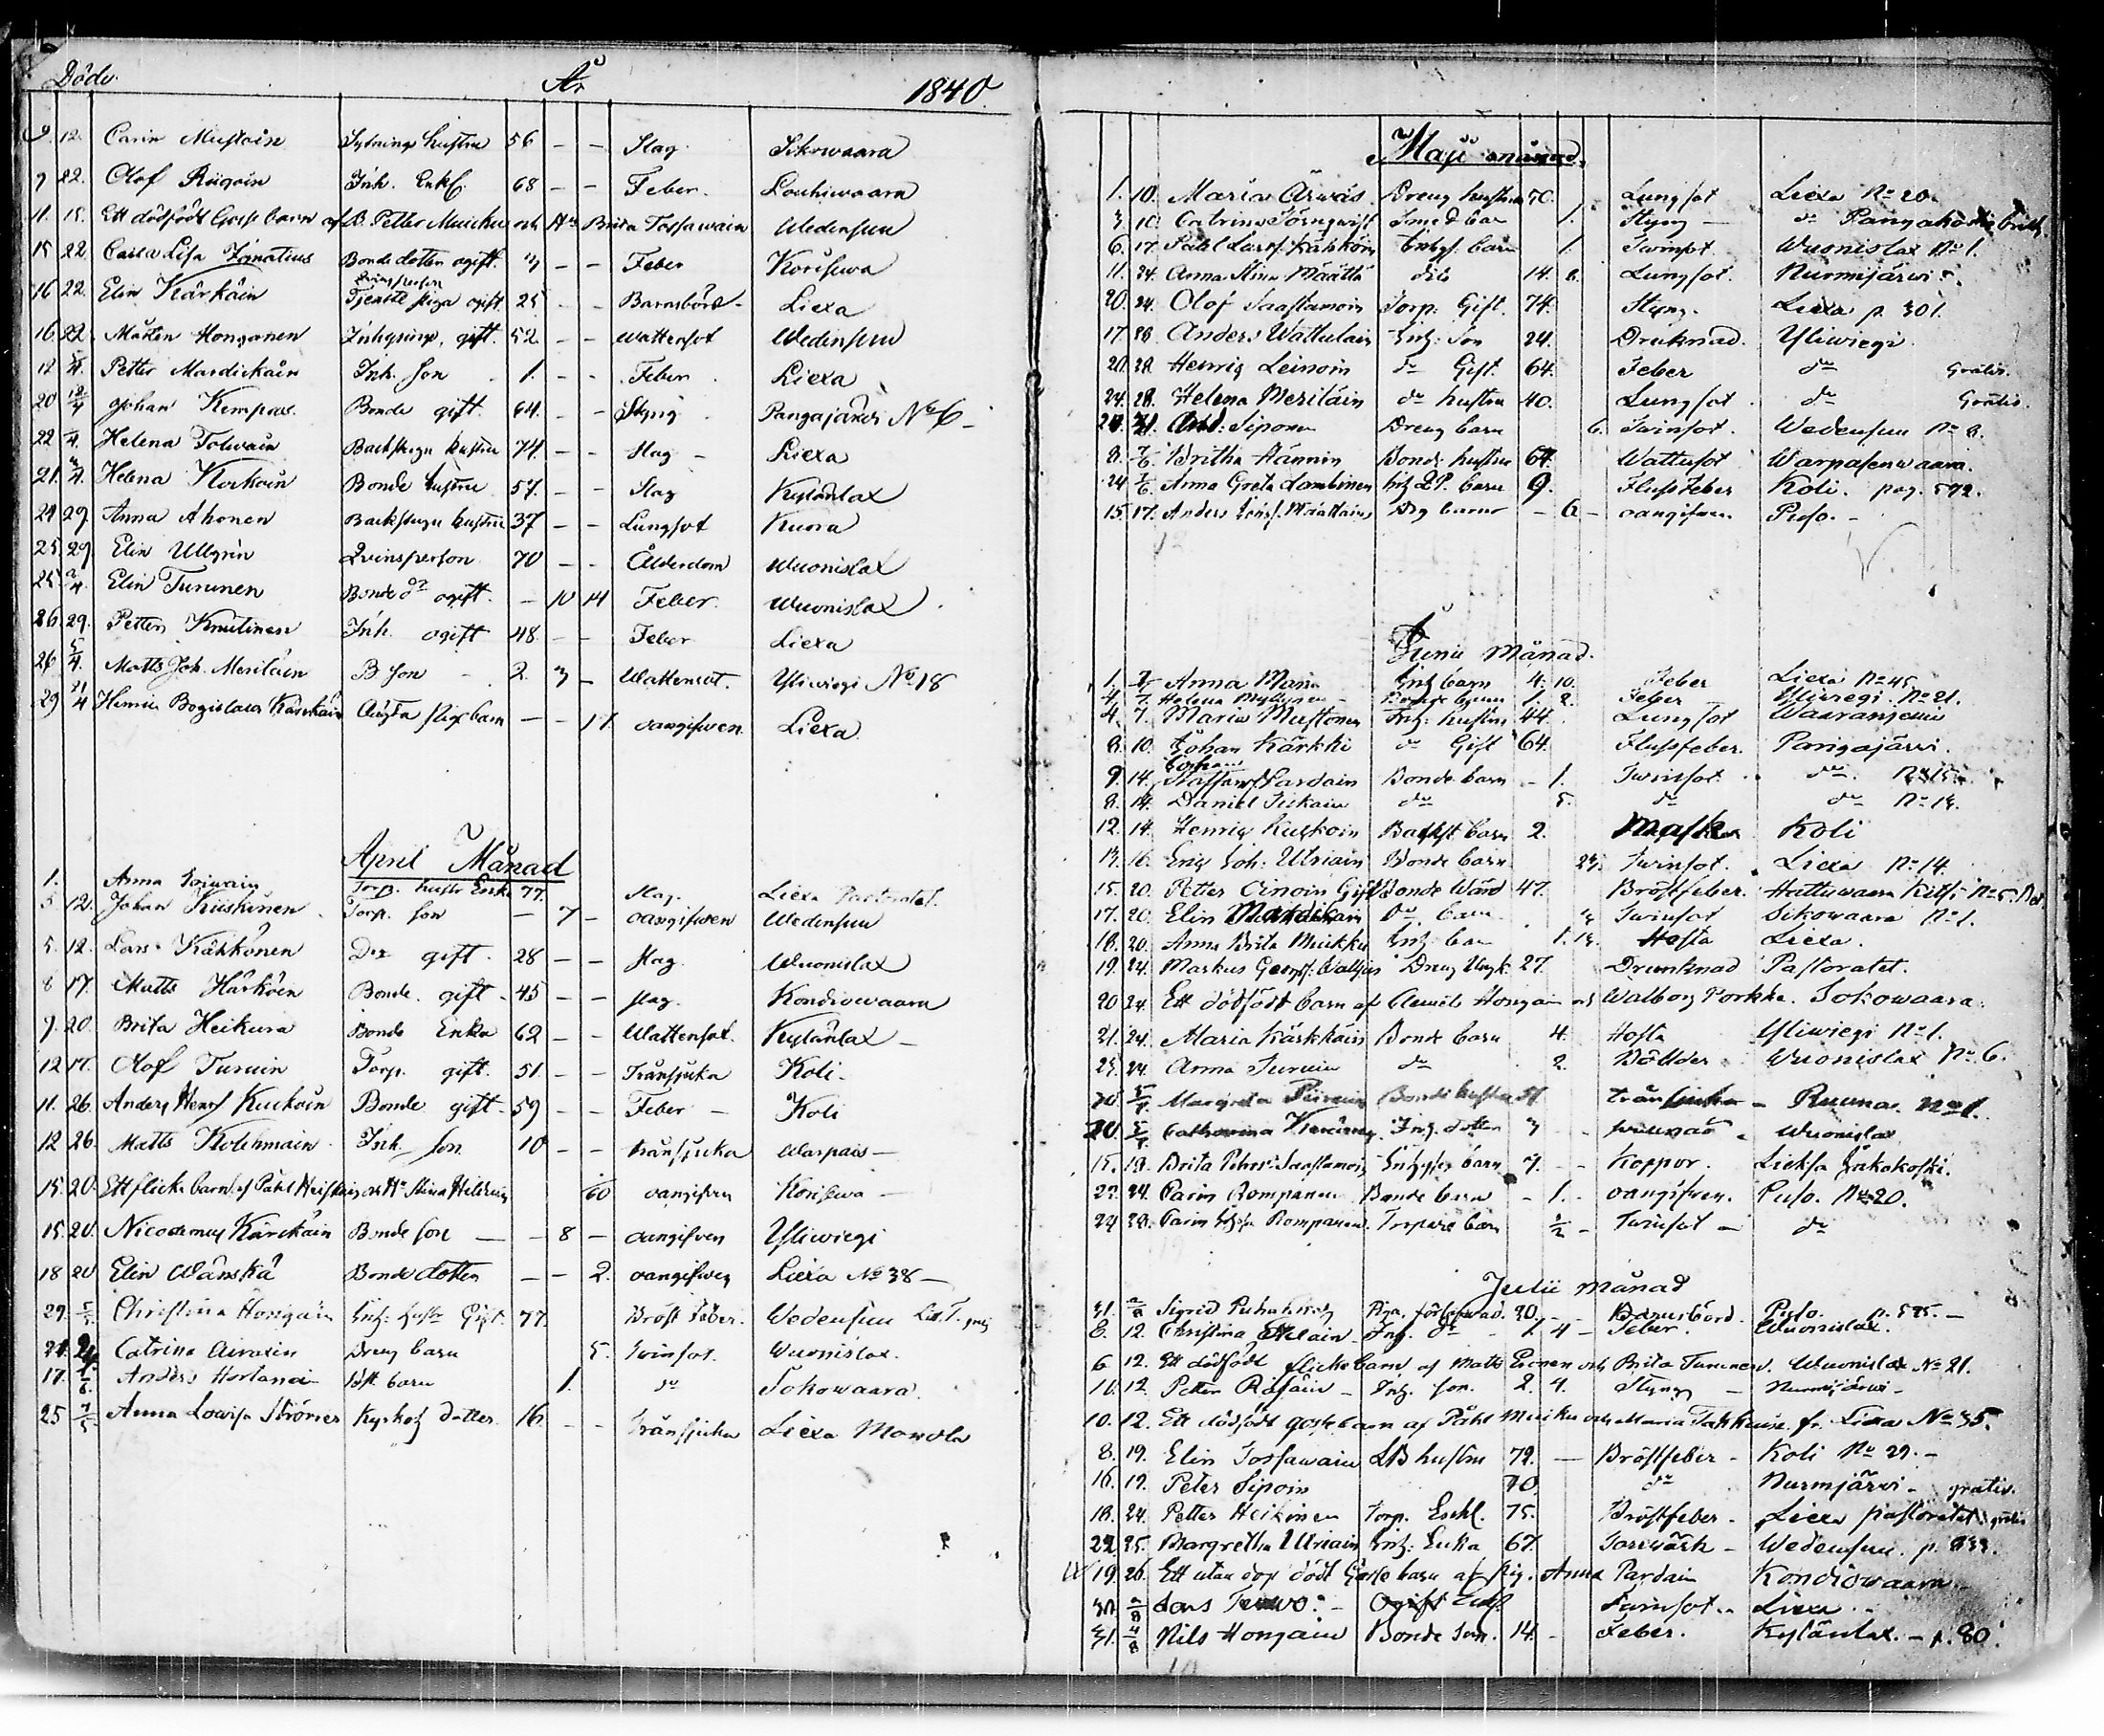 Döde. År 1840.
9. 12. Carin Mustoin Sytnings hustru 56 - - Slag Sikowaara
7 22. Olof Riigoin Inh. Enkl. 68 - - Feber. Louhiwaara
11. 15. Ett dödfödt Gosse barn af B. Petter Muicku och H. Brita Tossawain Wedensuu
15 22 Carin Lisa Ignatius Bonde dotter ogift. 3 - - Feber Koriseva
16 22. Elin Kärkäin Qvinsperson Tjenste piga ogift 25 - - Barnsbörd - Liexa
16. 22. Mårten Hongonen Inhysing. gift. 52 - - Wattensot Wedensuu
18 Petter Mardickäin Inh. son 1. - - Feber Liexa
20 12/4 Johan Kempas Bonde gift 64. - - Styng Pangajärvi No 6 -
22 Helena Tolwain Backstugu hustru 74 - - Slag - Liexa
21. Helena Korkoin Bonde hustru 57. - - Slag Kylänlax
21 29 Anna Ahonen Backstugu hustru 37 - - Lungsot Kuora
25. 29. Elin Ullgrin Qvinsperson 70 - - Ålderdom Wuonislax
25. 2/4. Elin Turunen Bonde dr ogift. - 10 14 Feber Wuonislax.
26. 29. Petter Knutinen Inh. ogift 48. - - Feber Liexa
26 5/4. Matts Joh. Meriläin B son - 2. 3 - Wattensot. Yliwiegi No 18
29 21/4 Bogislaus Kärckäin oägta barn - - 17. oangifwen. Liexa
April Månad
1. Anna Toiwain Torp. hustr Enka 77. Slag. Liexa Pastoratet.
5 12. Johan Kiiskinen Torp. son - 7 - oangifwen Wedensuu
5. 12. Lars Kähkönen Dr gift. 28 - - slag. Wuonislax
8 17. Matts Härköin Bonde. gift - 45 - - slag. Kondiowaara
9. 20. Brita Heikura Bonde Enka 62 - - Wattensot. Kylänlax -
12 17. Olof Turuin Torp. gift. 51. - - Trånsjuka Koli -
11. 26. Anders Henrs Kuckoin Bonde gift - 59 - - Feber - Koli
12 26. Matts Kolehmain Inh. son 10 - - trånsjucka Warpais -
15 20. Ett flicke barn af Påhl och Hu Stina 60 oangifven Koriseva -
15. 20. Nicodemus Kärckäin Bonde son - - 8 - oangifven Yliwiegi
18 20 Elin Wänskä Bonde dotter - - 2. oangifwen Liexa No 38 -
29. 5/5. Christina Hongain Inh: hustr Gift. 77. Bröst Feber. Wedensuu
21. 24 Catrina Airaxin Dreng barn 5. Twinsot. Wuonislax.
17. Anders Hortana bst barn 1. do Sokowaara.
25 7/5 Anna Lowisa Strömer dotter 16. - - Trånsjuka Liexa
Maji månad.
1. 10. Maria Ärwäs Dreng hustru 50. Lungsot Liexa No 20.
3 10. Catrina Törnqwist barn 1. Styng - do
6. 17. Påhl Larss. Kähköin Inhys. barn 1. Twinsot. Wuonislax No 1.
11. 24. Anna Stina Määttä dito 14. 8. Lungsot. Nurmijärwi
20. 24. Olof Saastamoin Torp. Gift. 74. Styng. Liexa p. 301.
17. 28 Anders Wattulain Inh: son 24. Druknad. Yliwiegi.
20. 28. Henrig Leinoin do Gift. 64. Feber do Gratis.
24. 28. Helena Meriläin do hustru 40. Lungsot. do Gratis.
And: Siponen Dreng barn 6. Twinsot. Wedensuu No 8.
8. 7/6. Britha Hännin Bonde hustru 64. Wattusot Warpasenwaara.
24 7/6. Anna Greta Lambinen barn 9. Fluss Feber Koli. pag. 592.
15. 17. Anders Määttäin Drg barn - 6 - oangifwen Puso. -
Junii Månad.
1. 7. Anna Maria Inh barn 4. 10. Feber Liexa No 45
4. 7. Helena Myllynen - Bonde barn 1. 2. Feber Yliwiegi No 21.
4. 7. Maria Mustonen Inh: hustru 44. Lungsot Waaranjewi
8. 10. Johan Kärkki do Gift 64. Flussfeber. Pangajärvi.
9. 14. Pardain Bonde barn - 1. Twinsot. do. No 15.
8. 14. Daniel do 5. do do No 14.
12. 14. Henrig Kuckoin Backst barn 2. Masken Koli
13. 16. Eriq Joh. Uriain Bonde barn 23. Twinsot. Liexa No 14.
15. 20. Petter Oinoin Gift Bonde Wärd 47. Bröstfeber. Hattuwaara
17. 20. Elin Mardikain Do barn Twinsot Sikowaara No 1.
18. 20. Anna Brita Muikku Inh. barn 1. 14. Hosta Liexa.
19. 24. Markus Dreng 27. Drunknad Pastoratet.
20 24. Ett dödfödt barn af Hongain och Walborg Porkka. Sokowaara.
21. 24. Maria Kärkkäin Bonde barn 4. Hosta Yliwiegi No 1.
23. 24. Anna Turuin do 2. Bölder Wuonislax No 6.
30 5/7 Margreta Piirain Bonde hustru 51. trånsjuka - Ruunaa No 1.
20. 5/7 Catharina Inh. dotter 3 - Wuonislax
15. 19. Brita Peters: Saastamoin barn 3. - - Koppor. Lieksa Jokikoski.
22. 24. Carin Romppanen Bonde barn - 1. - oangifven. Puso. No 20.
24 28. Carin Romppanen. Torpare barn 1/2 - Twinsot - do
Julii månad
31. 2/8 Sigrid Piga. förlofwad. 20. - - Barnsbörd. Puso. p. 525. -
8. 12. Christina Inh. dr - 1. 4 - Feber. Wuonislax.
6 12. Ett dödfödt flicke barn af Matts Eronen och Brita Turunen. Wuonislax No 21.
10. 12. Petter Räsäin - Inh. son. 2. 4. Styng - Nurmijärwi -
10. 12. Ett dödfödt gosse barn af Påhl Muikku och Maria fr. Liexa No 35.
8. 19. Elin Tossawain LB hustru 72. - Bröstfeber - Koli No 29. -
16. 19. Peter Sipoin 70. do Nurmjärwi - gratis.
18. 24. Petter Heikinen Torp. Enkl. 75. Bröstfeber - Liexa pastoratet. gratis
22. 25. Margretha Uriain Inh: Enka 67. Torrwärk - Wedensuu. p. 833.
19. 26. Ett utan dop dödt Gosse barn af Pig. Anna Pardain Kondiowaara -
30. 2/8 Lars Terwo. - Ogift Twinsot. - Liexa -
31. 4/8 Nils Hongain Bonde son. 14. - Feber. Kylänlax. - p. 80.